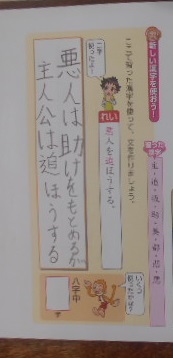 新しい漢字を使おう！
習った漢字
ここで習った漢字を使って、文を作りましょう。
れい
悪人を追ほうする。
二字使ったよ！
悪人は助けをもとめるが
主人公は追ほうする
いくつ使ったかな？
八字中